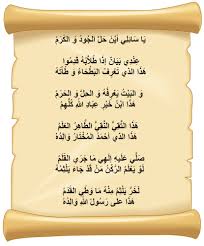 يَا سَائِلِي أَيْنَ حَلَّ الْجُودُ وَ الْكَرَمُ
عِنْدِي بَيَانٌ إِذَا طُلَّابُهُ قَدِمُوا
هَذَا الَّذِي تَعْرِفُ الْبَطْحَاءُ وَ طْأَتَهُ
وَ الْبَيْتُ يَعْرِفُهُ وَ الْحِلُّ وَ الْحَرَمُ
هَذَا ابْنُ خَيْرِ عِبَادِ اللَّهِ كُلِّهِمْ
هَذَا التَّقِيُّ النَّقِيُّ الطَّاهِرُ الْعَلَمُ
هَذَا الَّذِي أَحْمَدُ الْمُخْتَارُ وَالِدُهُ
صَلَّى عَلَيْهِ إِلَهِي مَا جَرَى الْقَلَمُ
لَوْ يَعْلَمُ الرُّكْنُ مَنْ قَدْ جَاءَ يَلْثِمُهُ
لَخَرَّ يَلْثِمُ مِنْهُ مَا وَطِئَ الْقَدَمُ
هَذَا عَلِيٌّ رَسُولُ اللَّهِ وَالِدُهُ